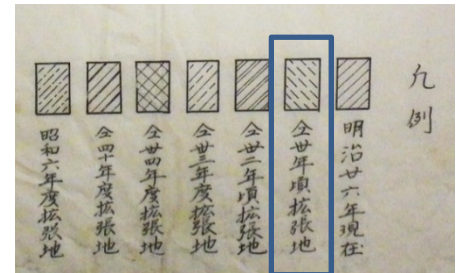 凡例
明治廿六年現在
仝丗年頃拡張地
仝丗二年頃拡張地
仝丗三年度拡張地
仝丗四年度拡張地
仝四十年度拡張地
昭和六年度拡張地